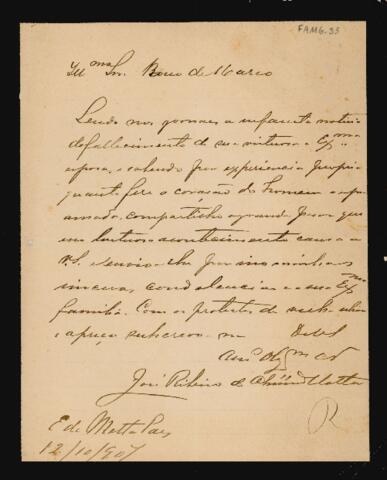 FAMG.33
Illmo Sr. Bueno de Marco
Lendo nos jornaes a infausta noticia
do fallecimento de sua virtuosa e Exma
esposa, e sabendo por experiencia propria
quanto fere o coração do homem
compartilho a grande dor que
um luctuoso acontecimento causa a
V.S. e envio-lhe por isso minhas
sinceras condolencias e a sua Exma
familia. Com os protestos de
e apreço subscrevo-me De V.S.
José Ribeiro de
E. de Matta
12/10/907
R